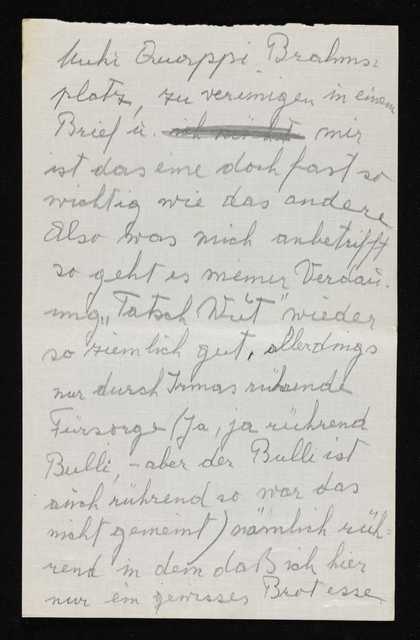 Muki Quappi Brahms=
platz, zu vereinigen in einem
Brief u. mir
ist das eine doch fast so
wichtig wie das andere
Also was mich anbetrifft
so geht es meiner Verdau=
ung „Tatsch Wüt" wieder
so ziemlich gut, allerdings
nur durch Irmas rührende
Fürsorge (Ja, ja rührend
Bulli, – aber der Bulli ist
auch rührend so war das
nicht gemeint) nämlich rüh=
rend in dem daß ich hier
nur ein gewisses Brot esse